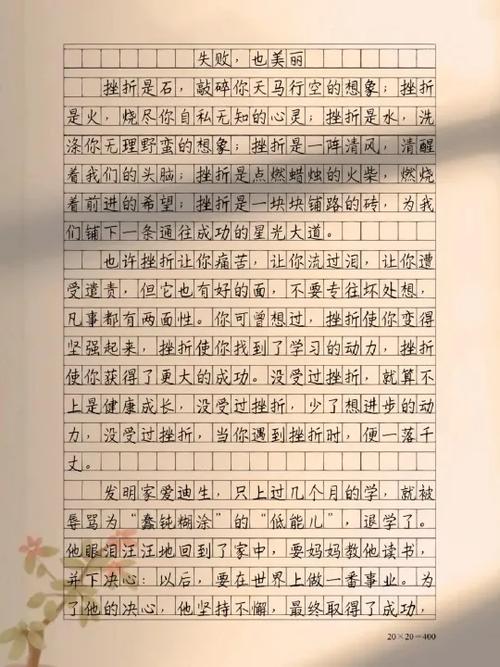 失败，也美丽
挫折是石，敲碎你天马行空的想象；挫折
是火，烧尽你自私无知的心灵；挫折是水，洗
涤你无理野蛮的想象；挫折是一阵清风，清醒
着我们的头脑；挫折是点燃蜡烛的火柴，燃烧
着前进的希望；挫折是一块块铺路的砖，为我
们铺下一条通往成功的星光大道。
也许挫折让你痛苦，让你流过泪，让你遭
受谴责，但它也有好的面，不要专往坏处想，
凡事都有两面性。你可曾想过，挫折使你变得
坚强起来，挫折使你找到了学习的动力，挫折
使你获得了更大的成功。没受过挫折，就算不
上是健康成长，没受过挫折，少了想进步的动
力，没受过挫折，当你遇到挫折时，便一落千
丈。
发明家爱迪生，只上过几个月的学，就被
辱骂为“蠢钝糊涂”的“低能儿”，退学了。
他眼泪汪汪地回到了家中，要妈妈教他读书，
并下决心：以后，要在世界上做一番事业。为
了他的决心，他坚持不懈，最终取得了成功，
20×20=400